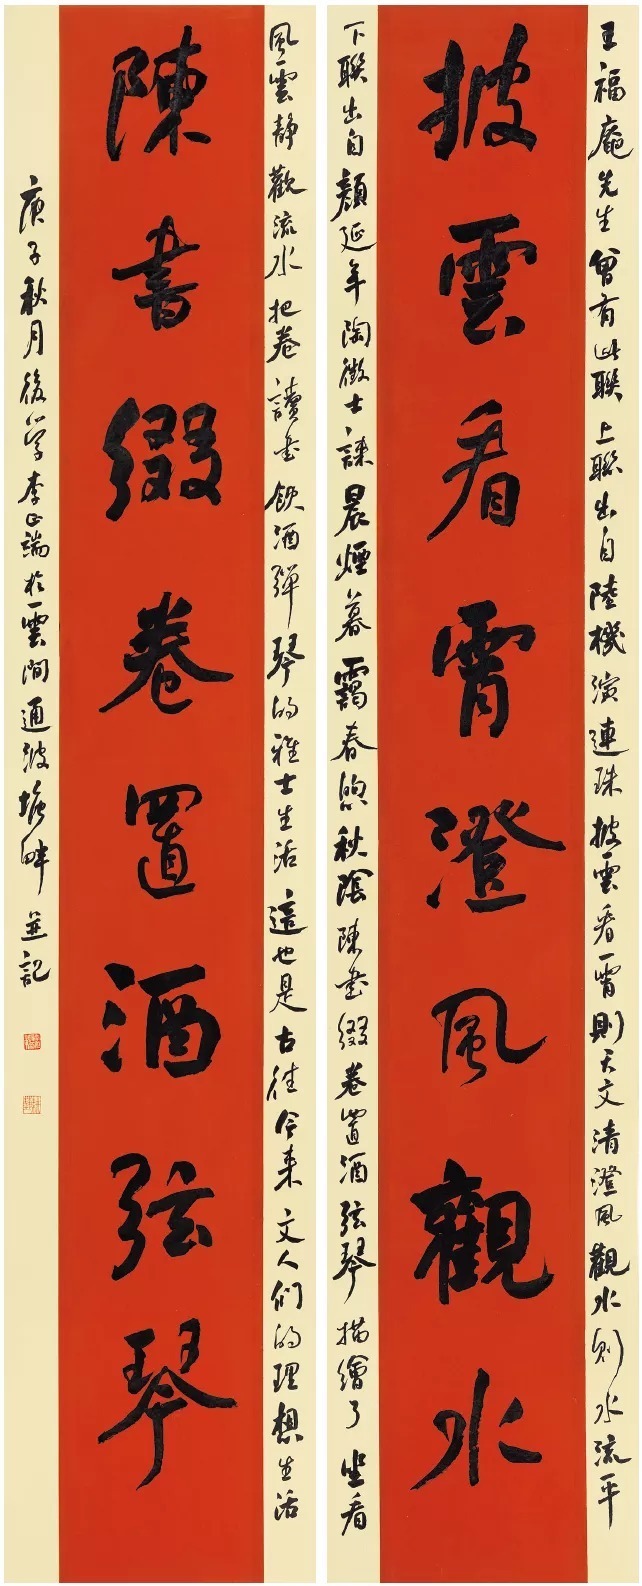 王福庵先生曾有此聯上聯出自陸機演連珠披雲看霄則天文清澄風觀水則水流平
披雲看霄澄風觀水
下聯出自顏延年陶徵士誄晨煙暮靄春煦秋陰陳書綴卷置酒弦琴描繪了坐看
風雲靜觀流水把卷讀書飲酒彈琴的雅士生活這也是古往今來文人們的理想生活
陳書綴卷置酒弦琴
庚子秋月後學李正端於雲間通波塘畔並記